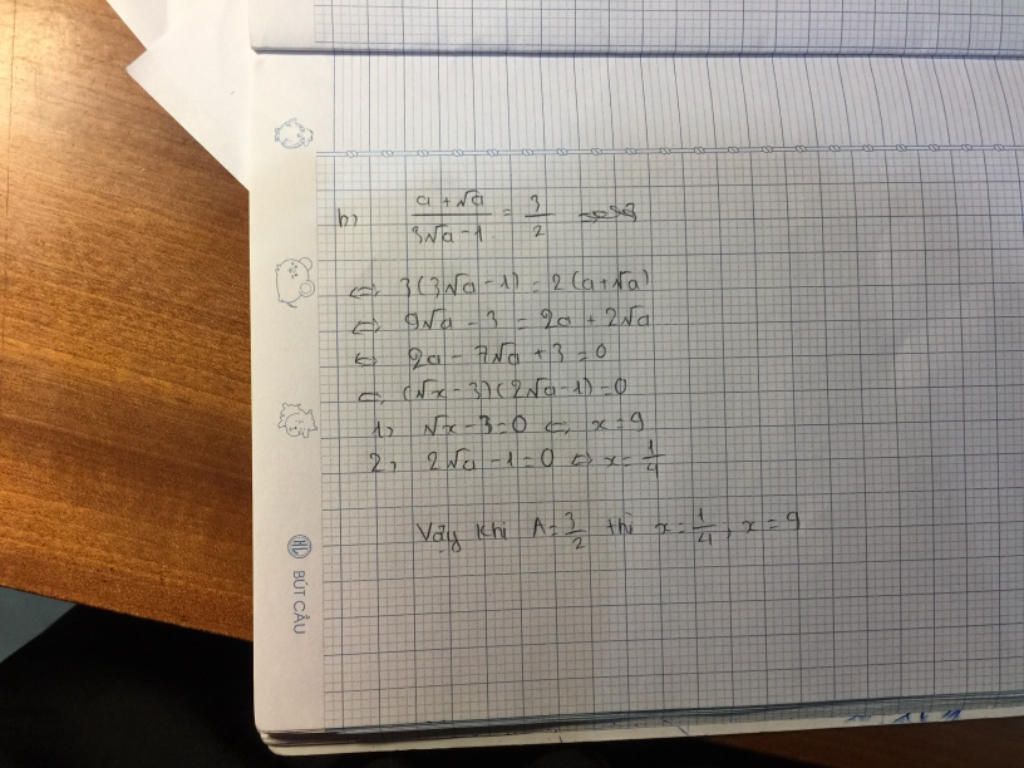 b, \frac{a+\sqrt{a}}{3\sqrt{a}-1} = \frac{3}{2}
⇔ 3(3√a - 1) = 2(a+√a)
⇔ 9√a - 3 = 2a + 2√a
⇔ 2a - 7√a + 3 = 0
⇔ (√x - 3)(2√a - 1) = 0
1, √x - 3 = 0 ⇔ x = 9
2, 2√a - 1 = 0 ⇔ x = \frac{1}{4}
Vậy khi A = \frac{3}{2} thì x = \frac{1}{4}, x = 9
HL BÚT CÂU